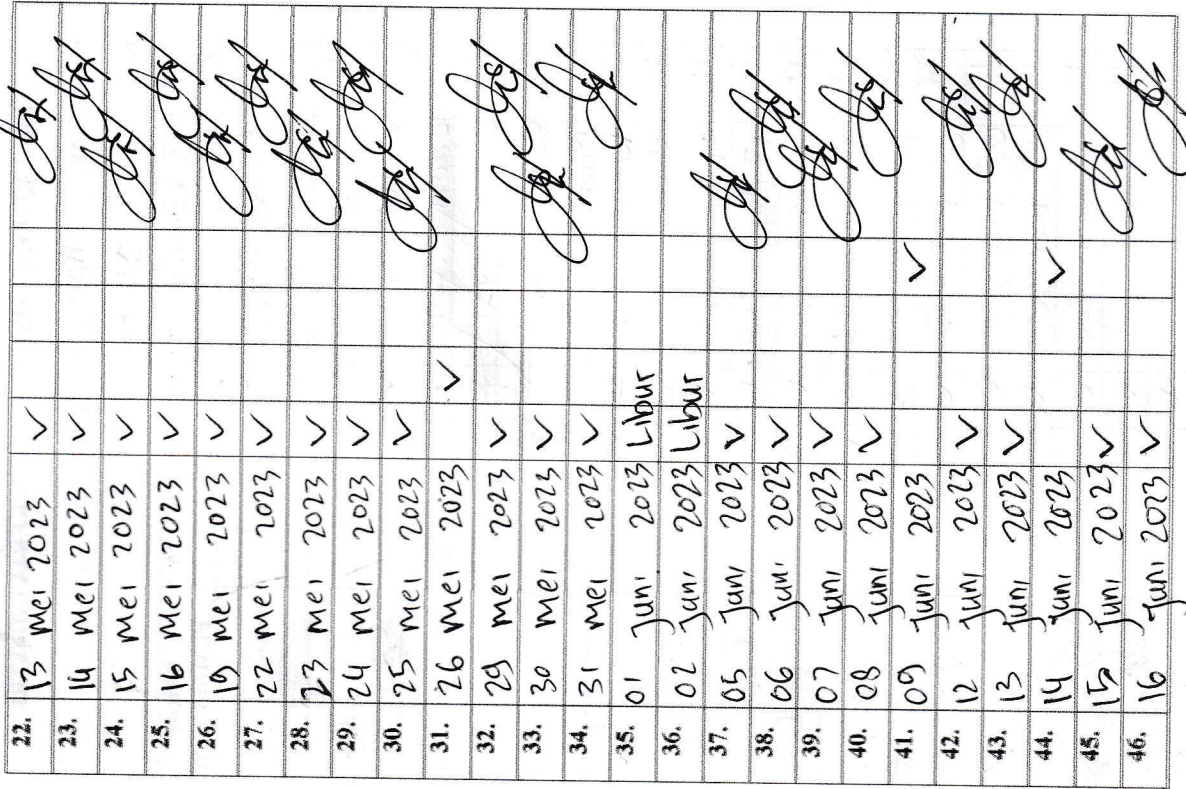 22. 13 mei 2023 ✓
23. 14 mei 2023 ✓
24. 15 mei 2023 ✓
25. 16 mei 2023 ✓
26. 19 mei 2023 ✓
27. 22 mei 2023 ✓
28. 23 mei 2023 ✓
29. 24 mei 2023 ✓
30. 25 mei 2023 ✓
31. 26 mei 2023 ✓
32. 29 mei 2023 ✓
33. 30 mei 2023 ✓
34. 31 mei 2023 ✓
35. 01 Juni 2023 Libur
36. 02 Juni 2023 Libur
37. 05 Juni 2023 ✓
38. 06 Juni 2023 ✓
39. 07 Juni 2023 ✓
40. 08 Juni 2023 ✓
41. 09 Juni 2023 ✓
42. 12 Juni 2023 ✓
43. 13 Juni 2023 ✓
44. 14 Juni 2023 ✓
45. 15 Juni 2023 ✓
46. 16 Juni 2023 ✓